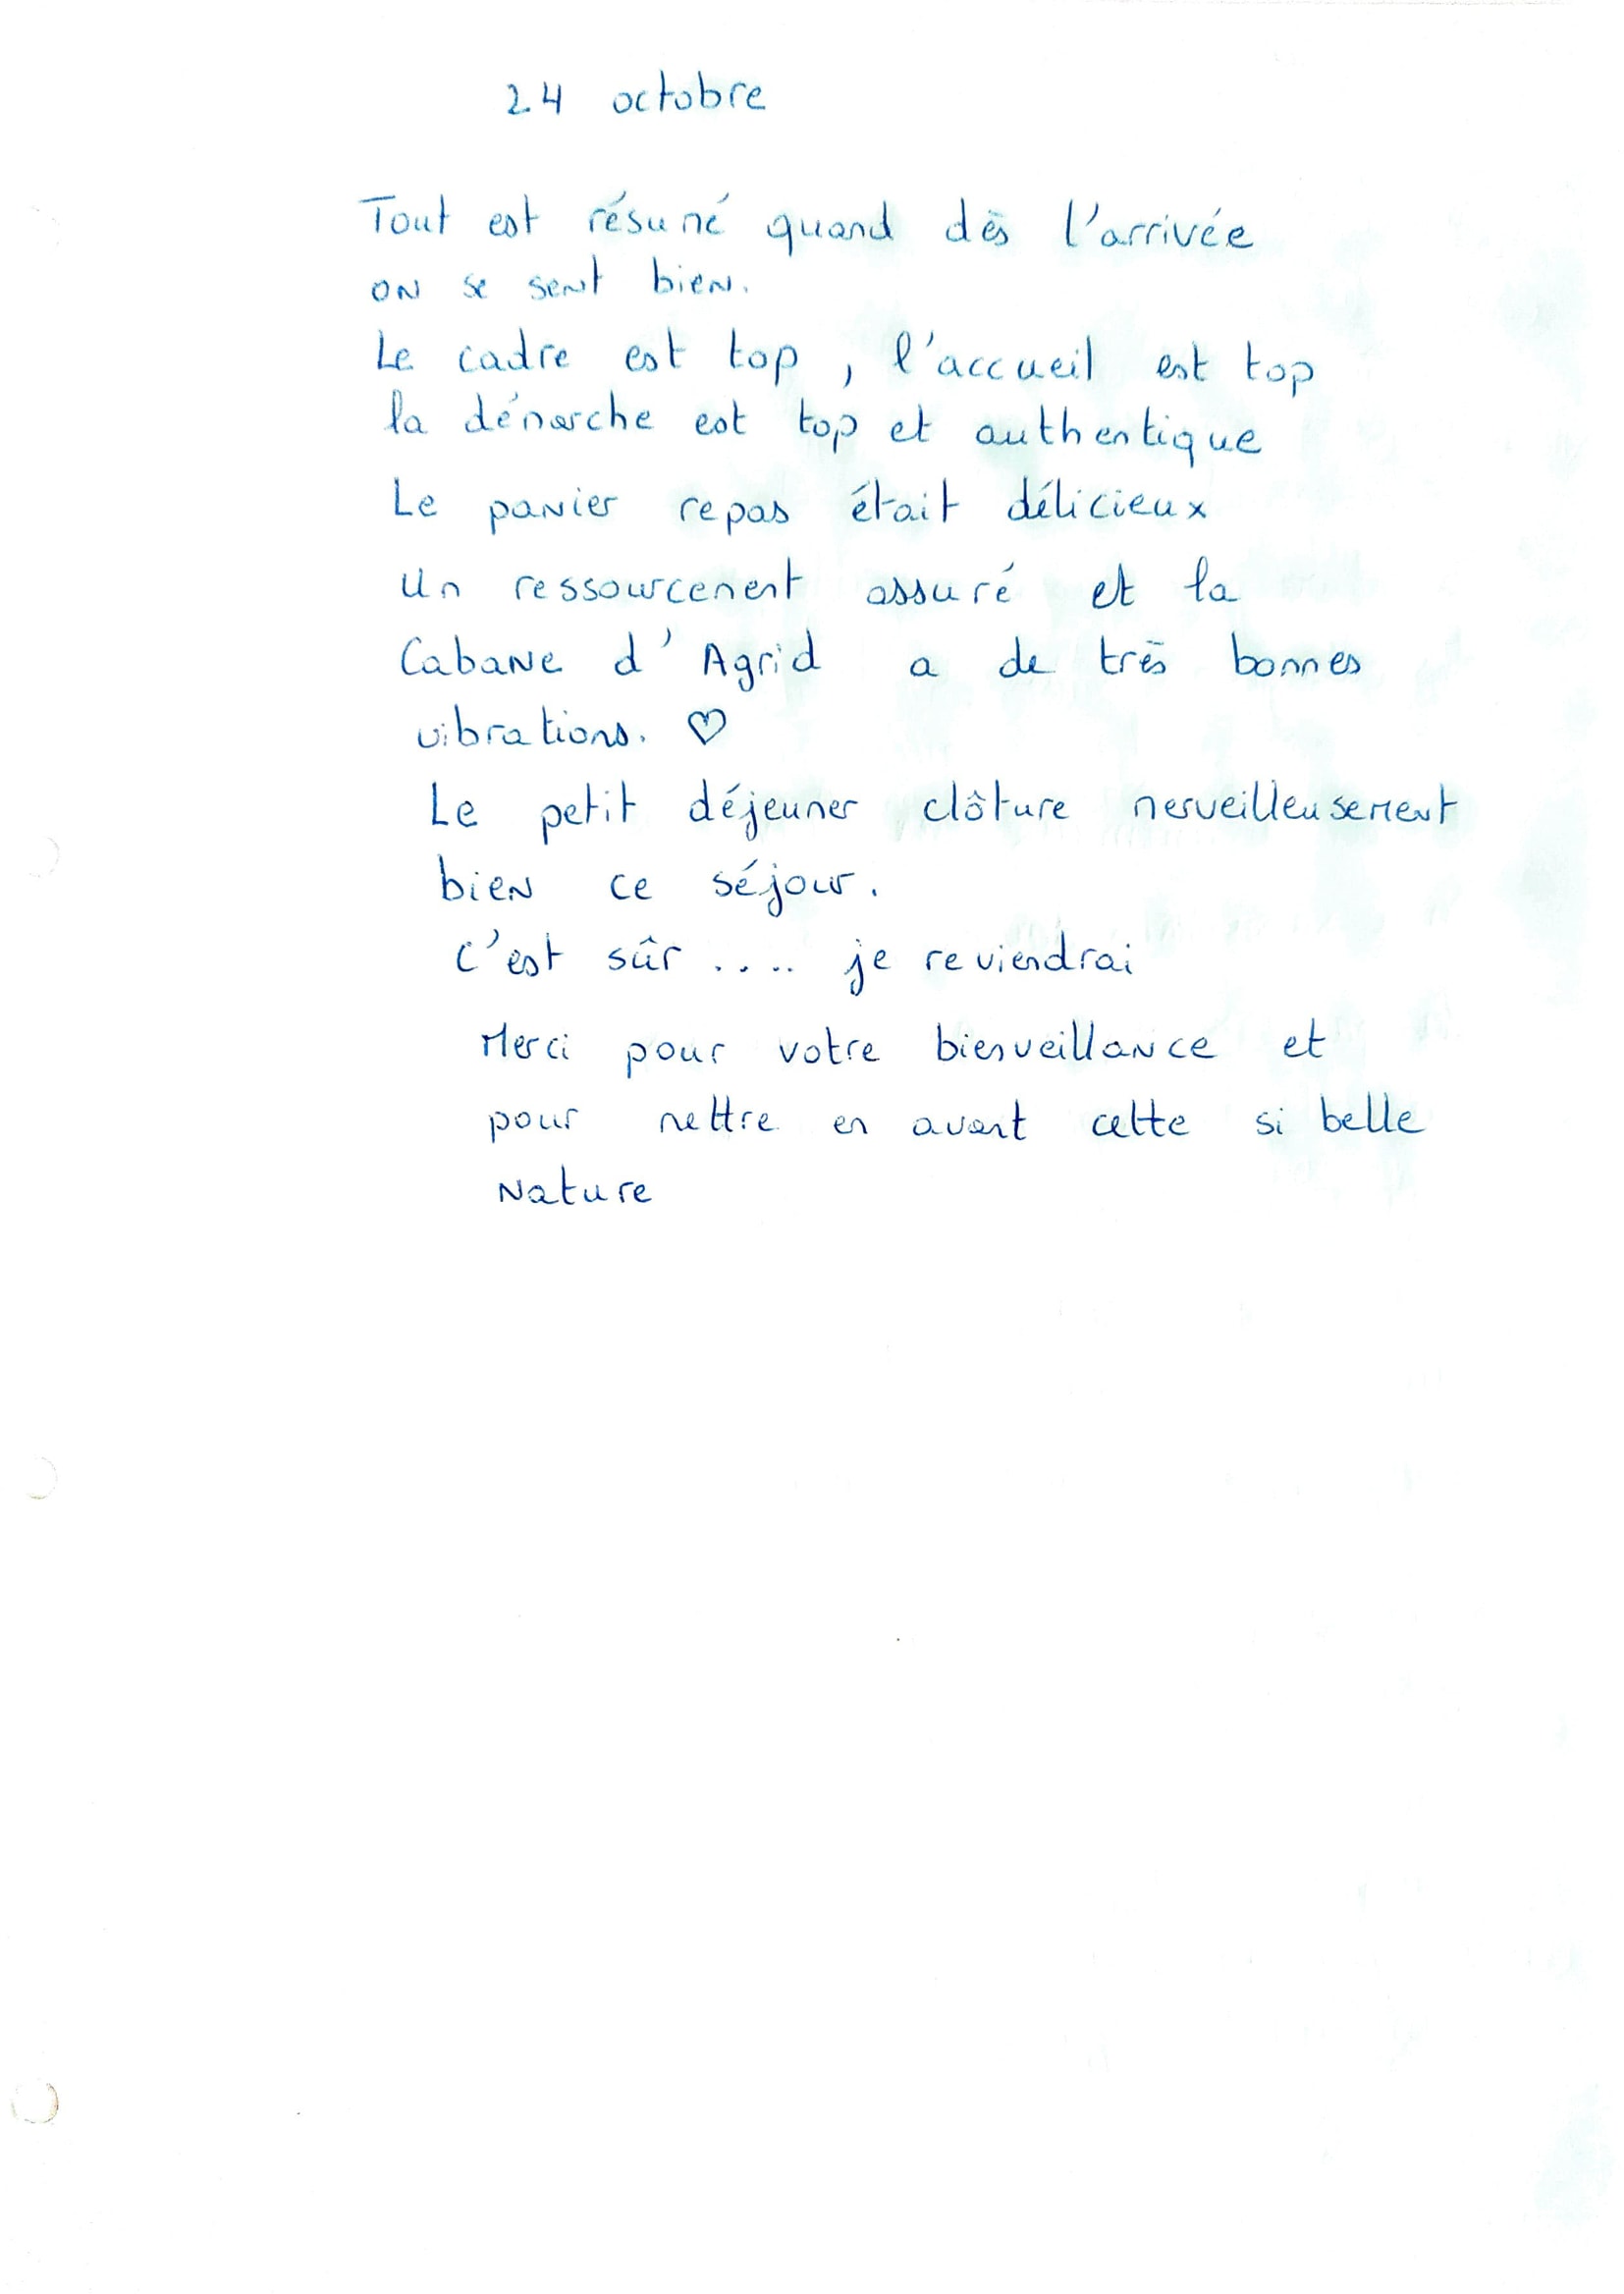 24 octobre
Tout est résumé quand dès l'arrivée
on se sent bien.
Le cadre est top, l'accueil est top
la démarche est top et authentique
Le panier repas était délicieux
Un ressourcement assuré et la
Cabane d'Agrid a de très bonnes
vibrations. ♡
Le petit déjeuner clôture merveilleusement
bien ce séjour.
C'est sûr .... je reviendrai
Merci pour votre bienveillance et
pour mettre en avant cette si belle
Nature